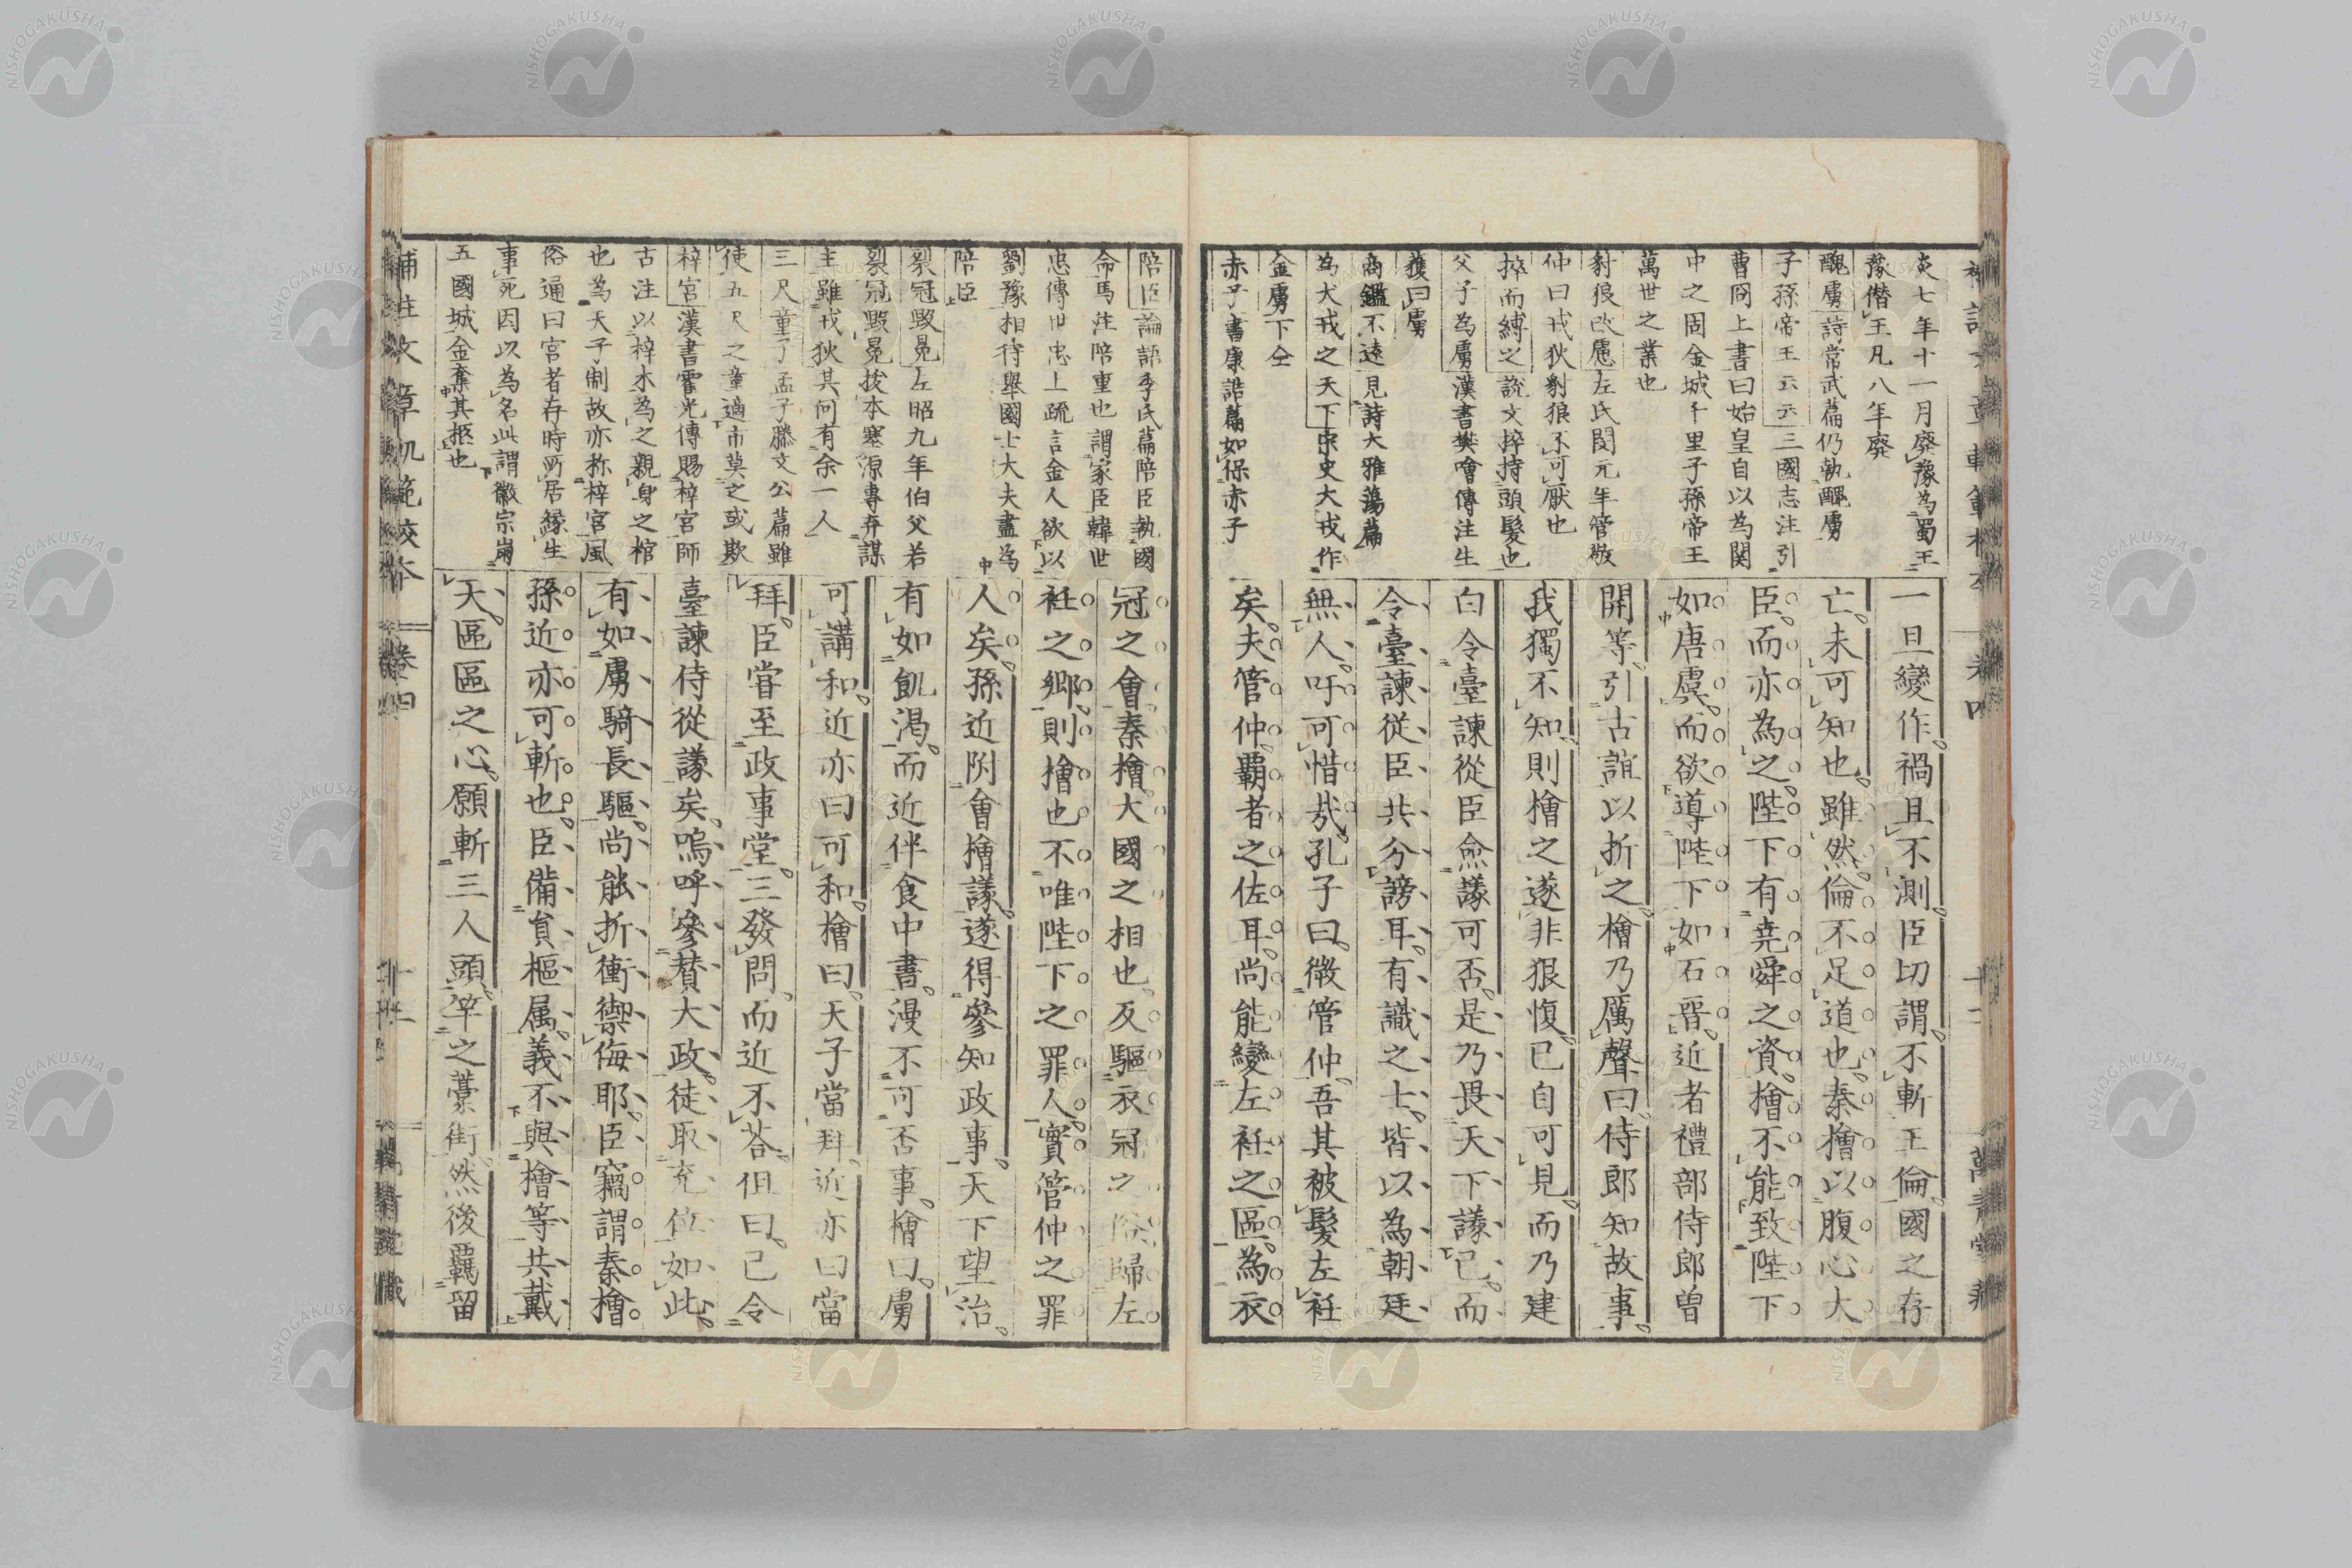 炎七年十一月廢豫為蜀王
豫僭王凡八年廢
醜虜詩常武篇仍執醜虜
子孫帝王云云三國志注引
曹冏上書曰始皇自以為関
中之固金城千里子孫帝王
萬世之業也
豺狼改慮左氏閔元年管敬
仲曰戎狄豺狼不可厭也
捽而縛之說文捽持頭髮也
父子為虜漢書樊噲傳注生
獲曰虜
商鑑不遠見詩大雅蕩篇
為犬戎之天下宋史犬戎作
金虜下仝
赤子書康誥篇如保赤子
一旦變作禍且不測臣切謂不斬王倫國之存
亡未可知也雖然倫不足道也秦檜以腹心大
臣而亦為之陛下有堯舜之資檜不能致陛下
如唐虞而欲導陛下如石晋近者禮部侍郎曾
開等引古誼以折之檜乃厲聲曰侍郎知故事
我獨不知則檜之遂非狠愎已自可見而乃建
白令臺諫從臣僉議可否是乃畏天下議已而
令臺諫從臣共分謗耳有識之士皆以為朝廷
無人吁可惜哉孔子曰微管仲吾其被髮左衽
矣夫管仲霸者之佐耳尚能變左衽之區為衣
陪臣論語季氏篇陪臣執國
命馬注陪重也謂家臣韓世
忠傳世忠上疏言金人欲以
劉豫相待舉國士大夫盡為
陪臣
裂冠毀冕左昭九年伯父若
裂冠毀冕拔本塞源專弃謀
主雖戎狄其何有余一人
三尺童子孟子滕文公篇雖
使五尺之童適市莫之或欺
梓宮漢書霍光傳賜梓宮師
古注以梓木為之親身之棺
也為天子制故亦称梓宮風
俗通曰宮者存時所居縁生
事死因以為名此謂徽宗崩
五國城金奪其柩也
冠之會秦檜大國之相也反驅衣冠之俗歸左
衽之鄉則檜也不唯陛下之罪人實管仲之罪
人矣孫近附會檜議遂得參知政事天下望治
有如飢渇而近伴食中書漫不可否事檜曰虜
可講和近亦曰可和檜曰天子當拜近亦曰當
拜臣嘗至政事堂三發問而近不荅但曰已令
臺諫侍從議矣嗚呼參贊大政徒取充位如此
有如虜騎長驅尚能折衝禦侮耶臣竊謂秦檜
孫近亦可斬也臣備貟樞属義不與檜等共戴
天區區之心願斬三人頭竿之藁街然後羈留
補註文章軌範校本 卷四